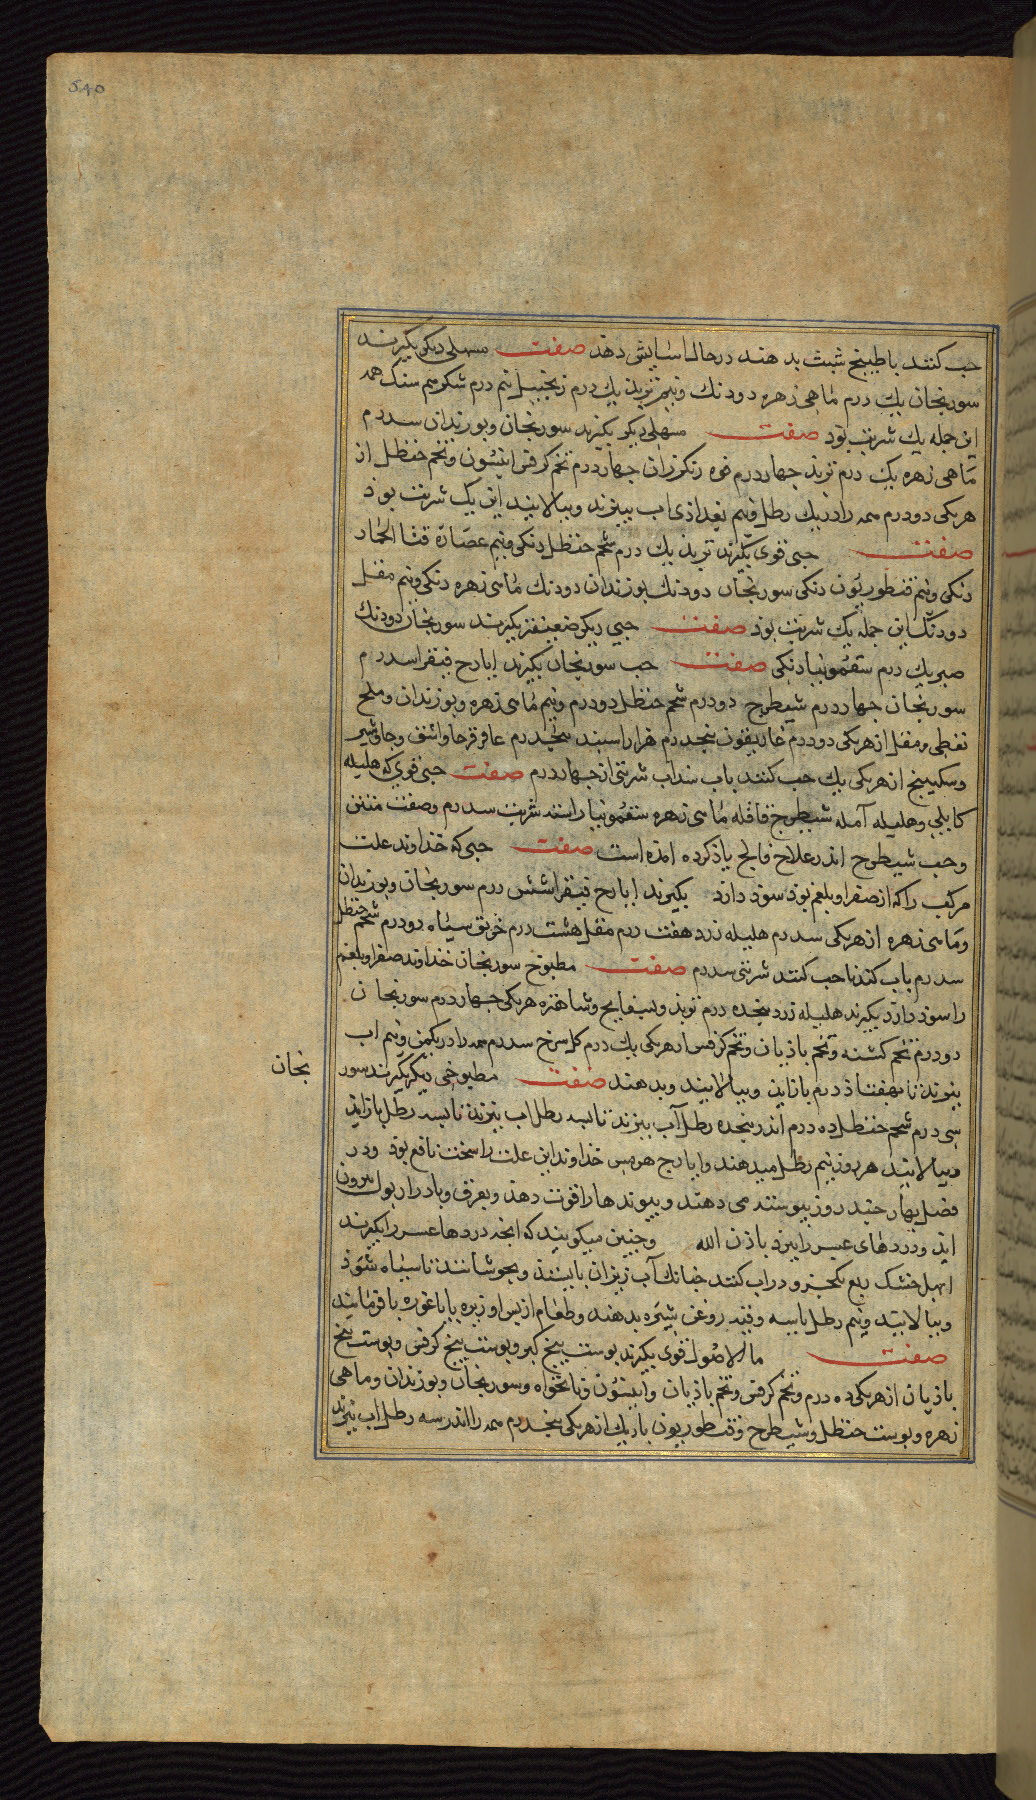 540
حب کنند با طبیخ شبث بدهند در حال اسایش دهد صفت مسهلی دیکر بکیرند
سورنجان یك درم ماهی زهره دو دنك و نیم تربذ یك درم زنجبیل نیم درم شکر هم سنك همه
این جمله یك شربت بوذ صفت مسهلی دیکر بکیرند سورنجان و بوزندان سه درم
ماهی زهره یك درم تربذ چهار درم فوه رنکرزان چهار درم تخم کرفس انیسون و تخم حنظل از
هریکی دو درم همه را در یك رطل و نیم اب ببزند و ببالایند این یك شربت بوذ
صفت حبی قوی بکیرند تربذ یك درم شحم حنظل دنکی و نیم عصارة قثا الحمار
دنکی و نیم قنطوریون دنکی سورنجان دو دنك بوزندان دو دنك ماهی زهره دنکی و نیم مقل
دو دنك این جمله یك شربت بوذ صفت حبی دیکر ضعیفتر بکیرند سورنجان دو دنك
صبر یك درم سقمونیا دنکی صفت حب سورنجان بکیرند ایارج فیقرا سه درم
سورنجان چهار درم شیطرج دو درم شحم حنظل دو درم و نیم ماهی زهره و بوزندان و ملح
نفطی و مقل از هریکی دو درم غاریقون پنج درم هزاراسبند پنج درم عاقرقرحا و اشق و جاوشیر
و سکبینج از هریکی یك حب کنند باب سذاب شربتی از چهار درم صفت حبی قوی که هلیله
کابلی و هلیله آمله شیطرج قاقله ماهی زهره سقمونیا راستند شربت سه درم و صفت منتن
و حب شیطرج اندر علاج فالج یاذ کرده امذه است صفت حبی که خذاوند علت
مرکب را که از صفرا و بلغم بوذ سوذ دارذ بکیرند ایارج فیقرا شش درم سورنجان و بوزندان
و ماهی زهره از هریکی سه درم هلیله زرد هفت درم مقل هشت درم خربق سیاه دو درم شحم حنظل
سه درم باب کندنا حب کنند شربتی سه درم صفت مطبوخ سورنجان خذاوند صفرا و بلغم
را سوذ دارذ بکیرند هلیله زرد پنجده درم تربذ و بسفایج و شاهتره هریکی چهار درم سورنجان
دو درم تخم کشنه و تخم باذیان و تخم کرفس از هریکی یك درم کل سرخ سه درم همه را در یکمن و نیم اب
ببزند تا بهفتاذ درم بازاید و ببالایند و بدهند صفت مطبوخی دیکر بکیرند سور
نجان
سی درم شحم حنظل ده درم اندر پنجده رطل آب ببزند تا بسه رطل اب ببزند تا بسه رطل بازاید
و ببالایند هر روز نیم رطل میدهند و ایارج هرمس خذاوند این علت را سخت نافع بوذ و در
فصل بهار چند روز پیوسته می دهند و پیوندها را قوت دهذ و بعرق و بادرار بول بیرون
ایذ و دردهای عسر را ببرذ باذن الله و چنین میکویند که انجه دردها عسر را بکیرند
ابهل خشك ربع کجیز و در اب کنند چنانك آب زبران بایستذ و بجوشانند تا سیاه شوذ
و ببالایند و نیم رطل با سه وقیه روغن شیره بدهند و طعام از بس او زیره با یا غوره با فرمایند
صفت ما الاصول قوی بکیرند بوست بیخ کبر و بوست بیخ کرفس و بوست بیخ
باذیان از هریکی ده درم و تخم کرفس و تخم باذیان و انیسون و نانخواه و سورنجان و بوزندان و ماهی
زهره و بوست حنظل و شیطرج و قنطوریون باریك از هریکی پنج درم همه را اندر سه رطل اب ببزند